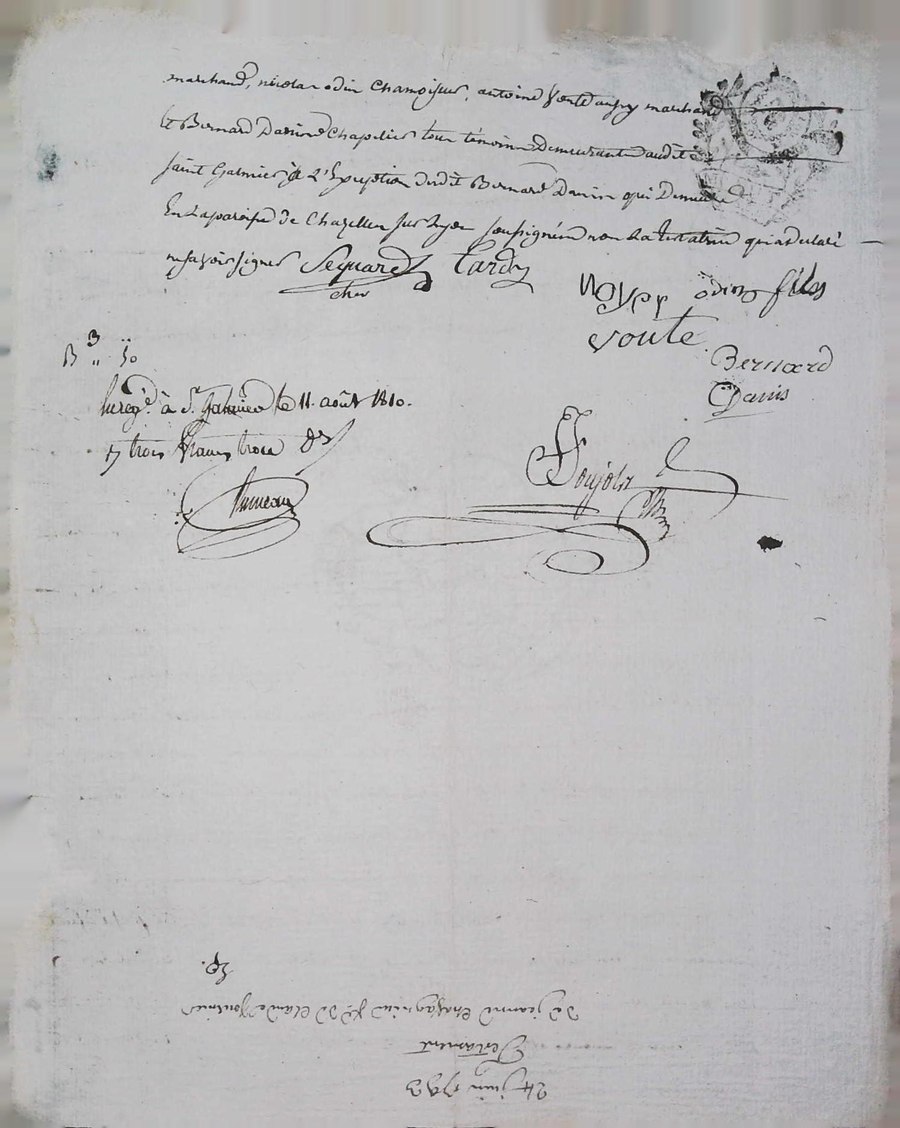 marchand, nicolas odin Chamoiseur, antoine Voute aussy marchand
et Bernard Danis Chapelier tous témoins demeurants audit
saint Galmier à L'Exception dudit Bernard Danis qui demeure
En La paroisse de Chazelles sur Lyon soussignés non La testatrice qui a declaré
ne savoir signer Sequard Tardy
cher
Noyer odin fils
voute
Bernard
Danis
3
B " 30
Enregé à St Galmier le 11 août 1810.
trois francs trois
Boujot
24 juin 1793
Testament
de jeanne femme de Claude